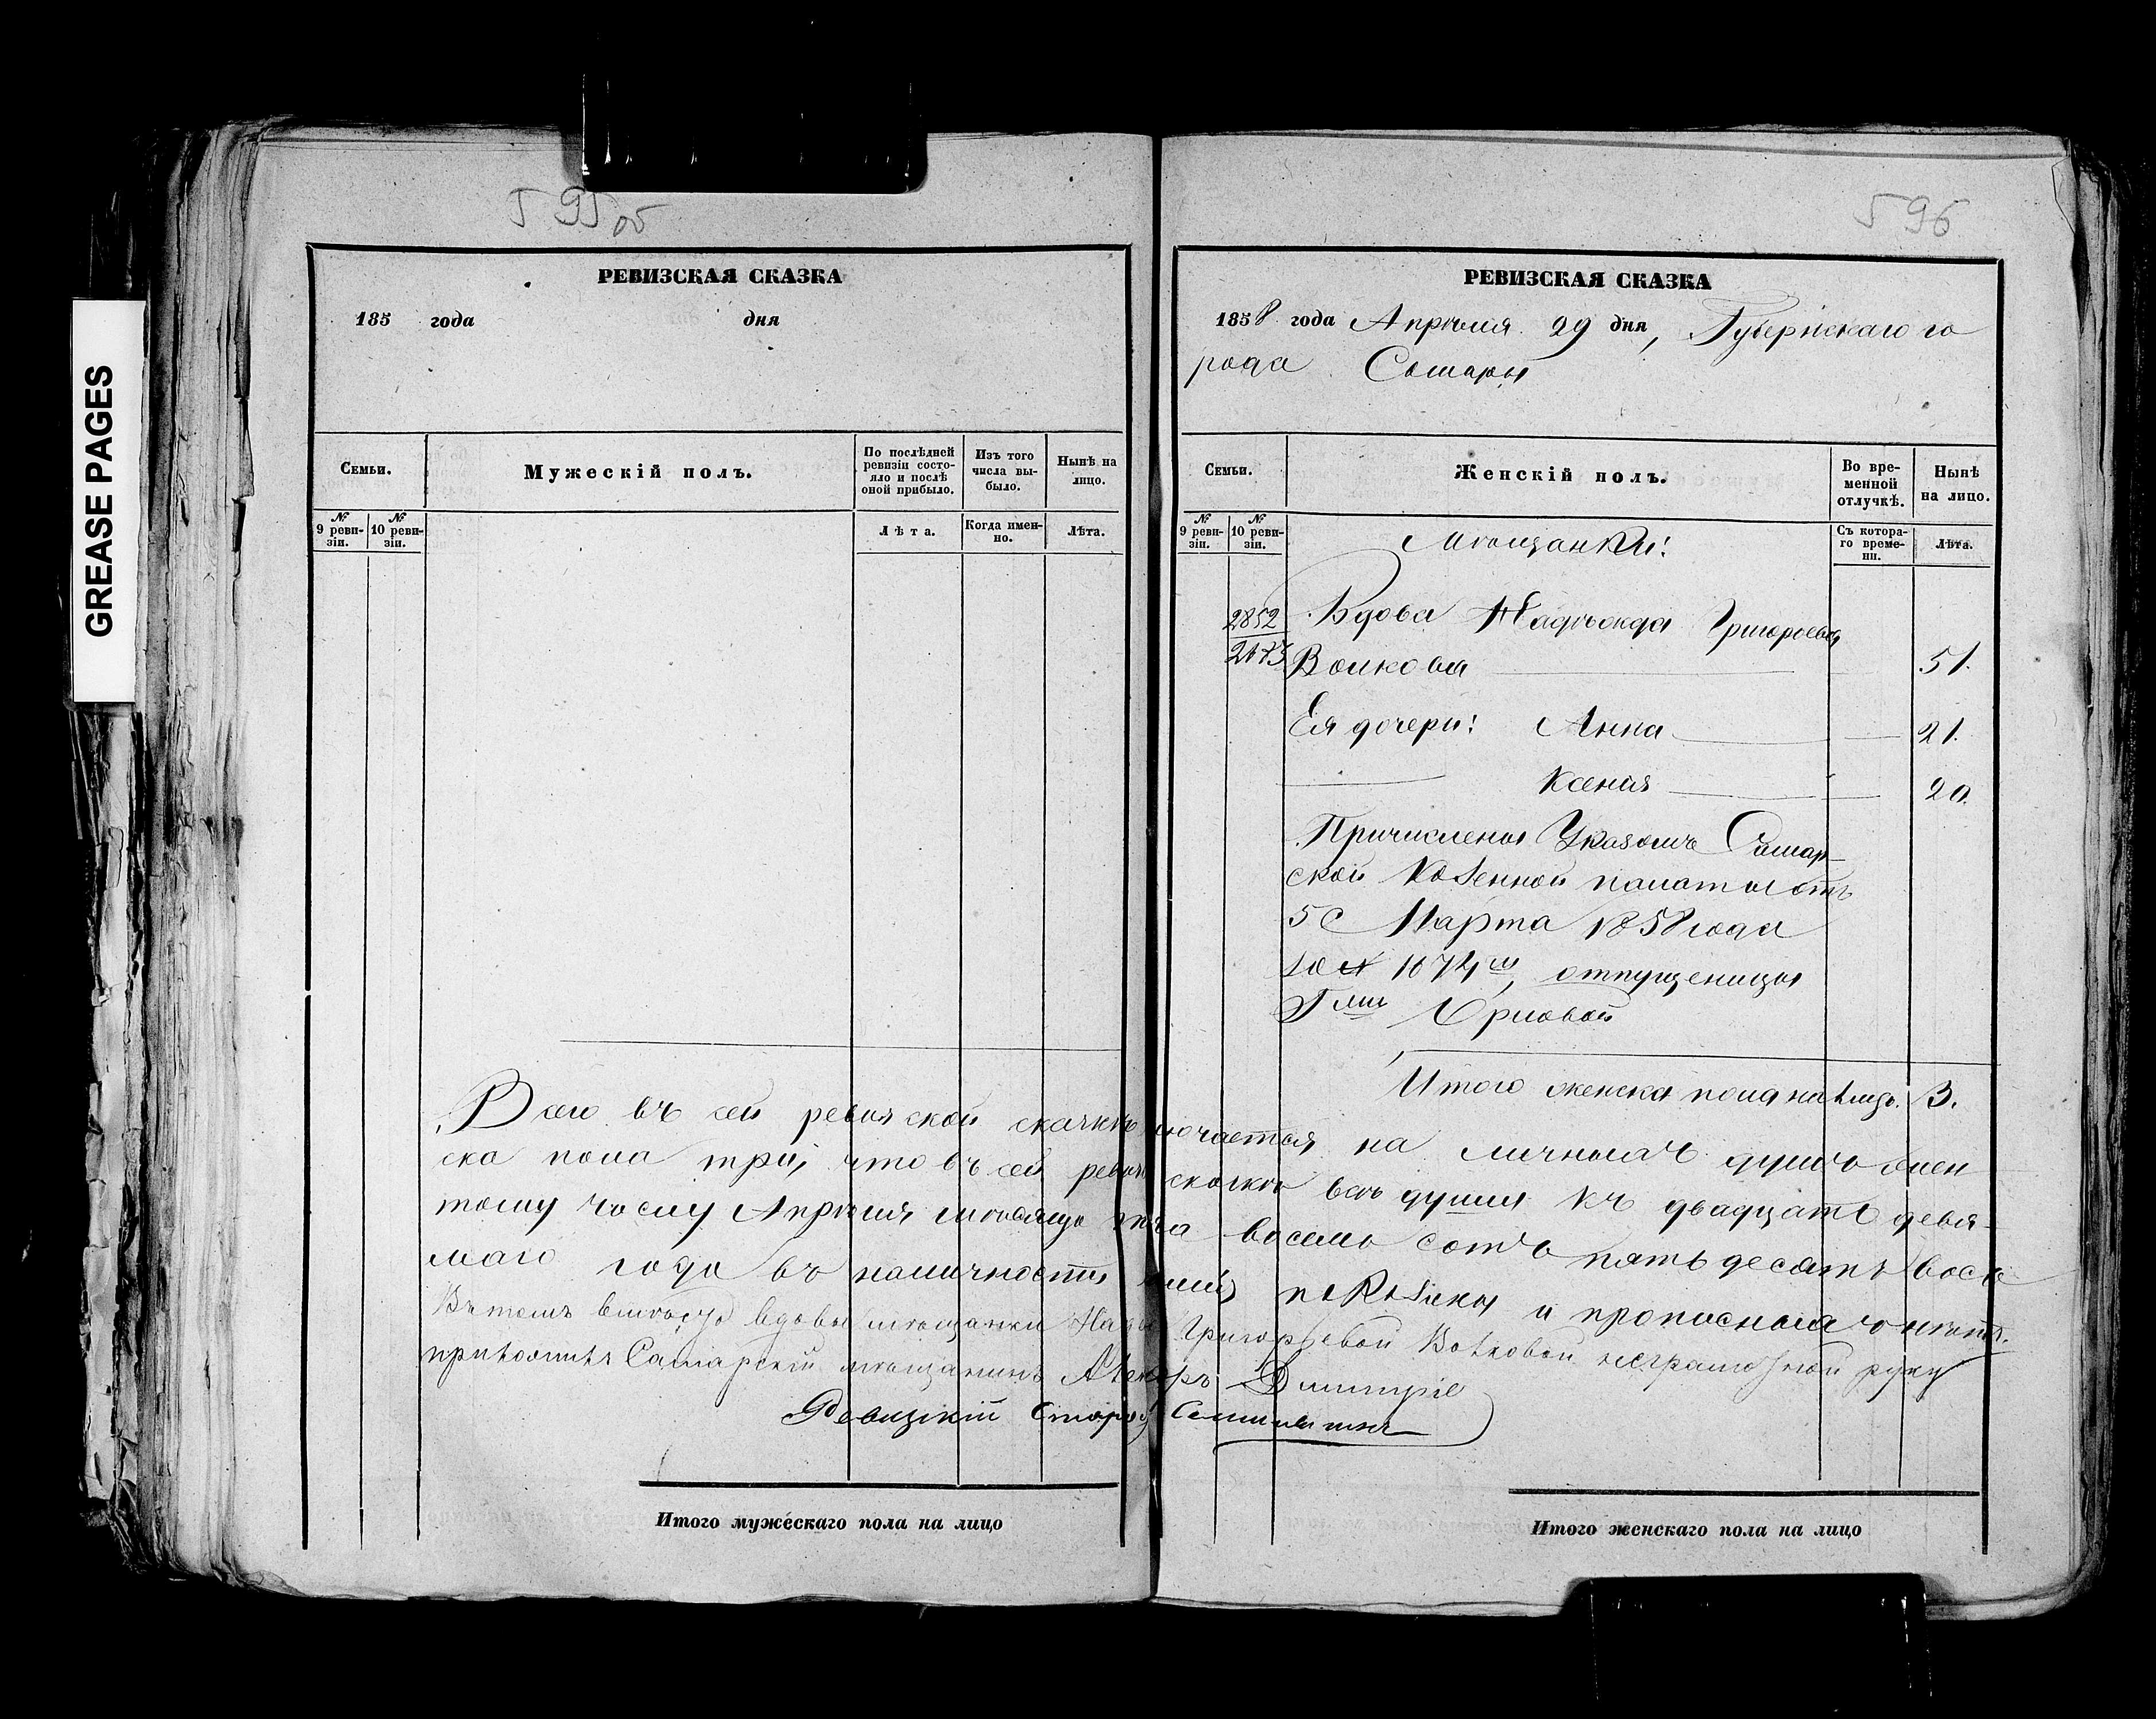 GREASE PAGES
595об
РЕВИЗСКАЯ СКАЗКА
185 года дня
Семьи.
Мужескій полъ.
По послѣдней ревизіи состояло и послѣ оной прибыло.
Изъ того числа выбыло.
Нынѣ на лицо.
№ 9 ревизіи.
№ 10 ревизіи.
Лѣта.
Когда именно.
Лѣта.
596
РЕВИЗСКАЯ СКАЗКА
1858 года Апрѣля 29 дня, Губернскаго го
рода Самары
Семьи.
Женскій полъ.
Во временной отлучкѣ.
Нынѣ на лицо.
№ 9 ревизіи.
№ 10 ревизіи.
Съ котораго времени.
Лѣта.
Мѣщанки:
2852
Вдова Надѣжда Григорьева
Волкова 51.
Ея дочери: Анна 21.
Ксенія 20.
Причислены Указомъ Самар-
ской Казенной палаты отъ
5 Марта 1858 года
за № отпущеницы
Гжи Орловой
Итого женска пола на лицо. 3.
Всего въ сей ревизской сказкѣ на личныхъ душъ жен
ска пола три, что въ сей ревиз сказкѣ всѣ души къ двадцать девя-
тому числу Апрѣля мѣсяца восемь сотъ пятьдесятъ вось
маго года въ наличности и прописныхъ нѣтъ.
Въ томъ вмѣсто вдовы мѣщанки Над Григорьевой Волковой неграмотной руку
приложилъ Самарскій мѣщанинъ Дмитріе
Ревизскій Старо
Итого мужескаго пола на лицо
Итого женскаго пола на лицо